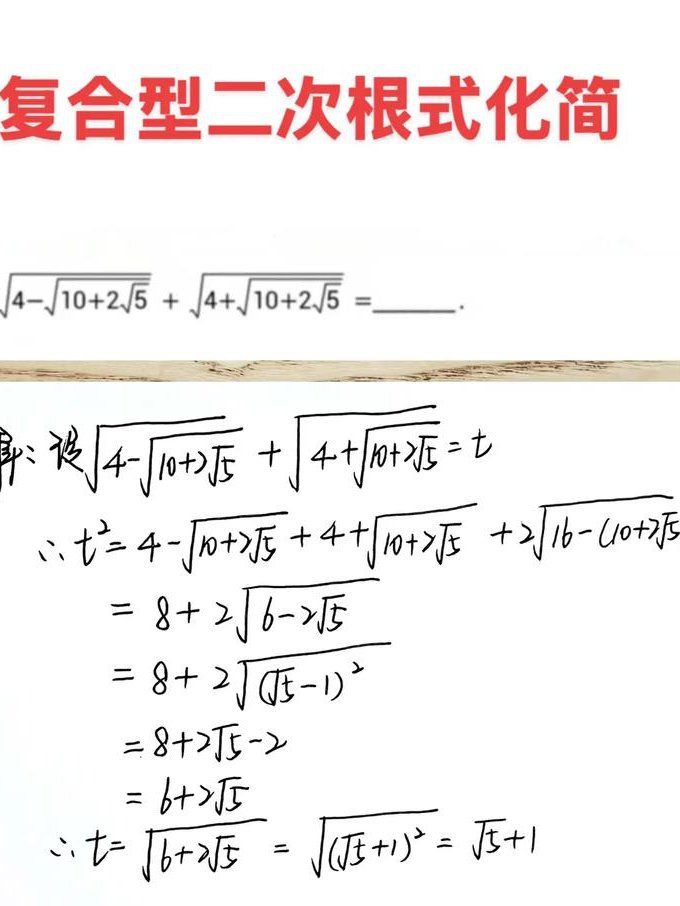 复合型二次根式化简
√(4-√(10+2√5)) + √(4+√(10+2√5)) =______.
解: 设√(4-√(10+2√5)) + √(4+√(10+2√5)) = t
∴ t² = 4-√(10+2√5) + 4+√(10+2√5) + 2√(16-(10+2√5
= 8+2√(6-2√5)
= 8+2√((√5-1)²)
= 8+2√5-2
= 6+2√5
∴ t= √(6+2√5) = √((√5+1)²) = √5+1